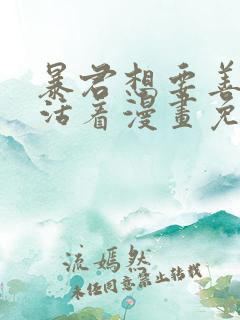 暴君想要善
活着漫畫免
流嫣然
未经同意禁止转载